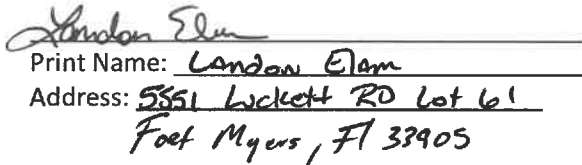 Landon Elam
Print Name: Landon Elam
Address: 5551 Luckett RD Lot 61
Fort Myers, Fl 33905